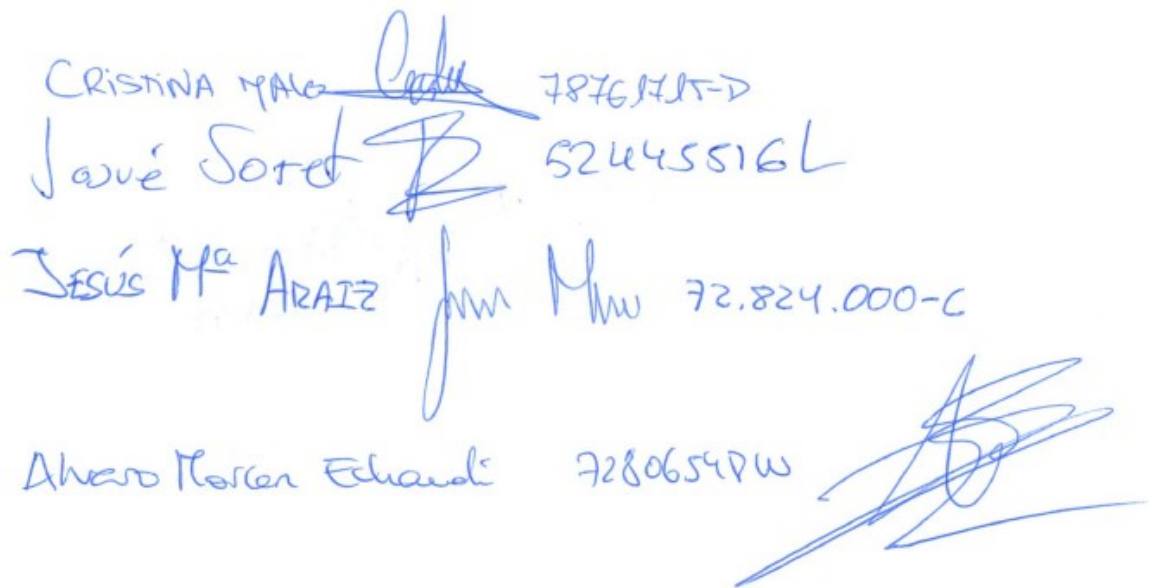 CRISTINA MALO 78761715-D
Josué Soret 52445516L
JESÚS Mª ARAIZ 72.824.000-C
Alvaro Marcen Echandi